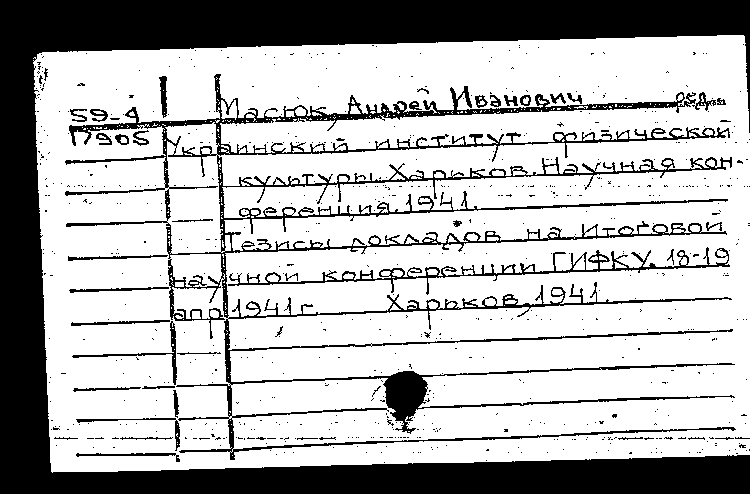 59-4 Масюк, Андрей Иванович ред.
17905 Украинский институт физической
культуры. Харьков. Научная кон-
ференция. 1941.
Тезисы докладов на Итоговой
научной конференции ГИФКУ. 18-19
апр 1941 г. Харьков, 1941.